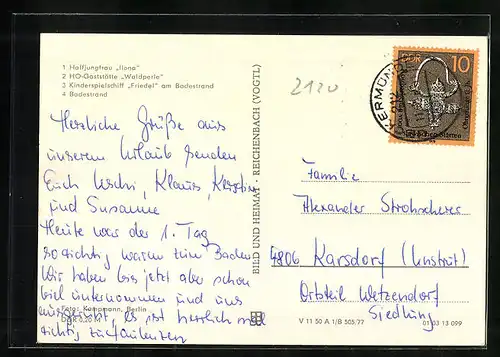 1 Haffjungfrau „Ilona"
2 HO-Gaststätte „Waldperle"
3 Kinderspielschiff „Friedel" am Badestrand
4 Badestrand
2120
DDR 10
Herzliche Grüße aus
unserem Urlaub senden
Euch Uschi, Klaus, Kerstin
und Susanne
Heute war der 1. Tag
so richtig warm zum Baden
Wir haben bis jetzt aber schon
viel unternommen und uns
es ist herrlich mal
richtig zu faulenzen
Foto: Kampmann, Berlin
BILD UND HEIMAT · REICHENBACH (VOGTL)
Familie
Alexander
4806 Karsdorf (Unstrut)
Ortsteil Wetzendorf
Siedlung
V 11 50 A 1/B 505.77
01 03 13 099